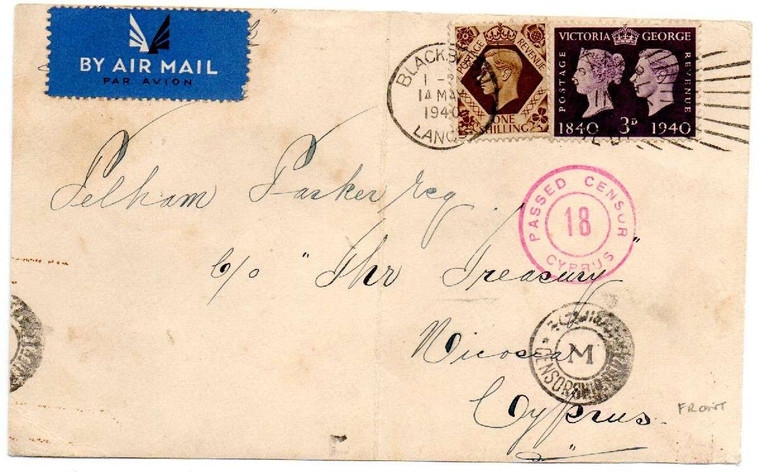 BY AIR MAIL
PAR AVION
BLACKB
1-
14 MA
1940
LANCS
POSTAGE REVENUE
ONE
SHILLING
VICTORIA GEORGE
POSTAGE
REVENUE
1840 3D 1940
PASSED CENSOR
18
CYPRUS
Pelham Parker Esq
c/o "The Treasury"
Nicosia
Cyprus.
M
CENSORSHIP
FRONT